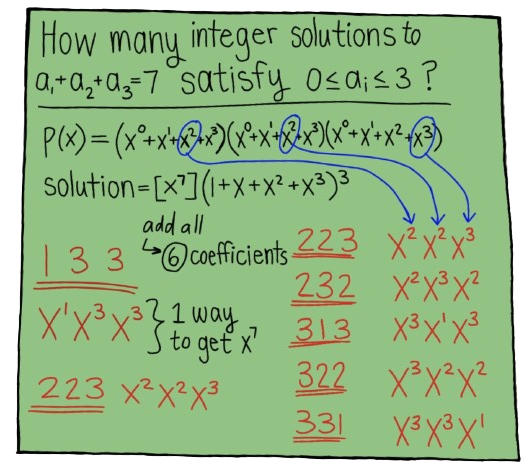 How many integer solutions to
a₁+a₂+a₃=7 satisfy 0≤aᵢ≤3?
P(x)=(x⁰+x¹+x²+x³)(x⁰+x¹+x²+x³)(x⁰+x¹+x²+x³)
solution=[x⁷](1+x+x²+x³)³
add all
↳⑥coefficients
1 3 3
x¹x³x³} 1 way
to get x⁷
223 x²x²x³
223 x²x²x³
232 x²x³x²
313 x³x¹x³
322 x³x²x²
331 x³x³x¹